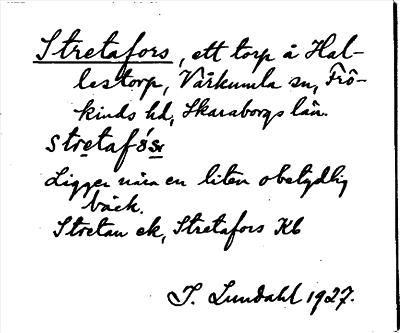 Stretafors, ett torp å Hal-
lestorp, Vårkumla sn, Frö-
kinds hd, Skaraborgs län.
stretafo̊s̱r
Ligger nära en liten obetydlig
bäck.
Stretan ek, Stretafors Kb
I. Lundahl 1927.